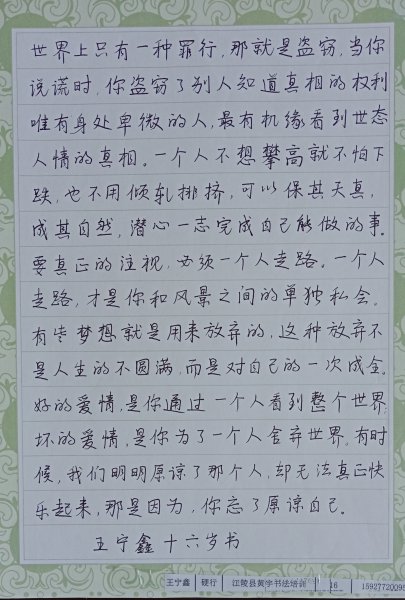 世界上只有一种罪行，那就是盗窃，当你
说谎时，你盗窃了别人知道真相的权利
唯有身处卑微的人，最有机缘看到世态
人情的真相。一个人不想攀高就不怕下
跌，也不用倾轧排挤，可以保其天真，
成其自然，潜心一志完成自己能做的事。
要真正的注视，必须一个人走路。一个人
走路，才是你和风景之间的单独私会。
有些梦想就是用来放弃的，这种放弃不
是人生的不圆满，而是对自己的一次成全。
好的爱情，是你通过一个人看到整个世界
坏的爱情，是你为了一个人舍弃世界。有时
候，我们明明原谅了那个人，却无法真正快
乐起来，那是因为，你忘了原谅自己。
王宁鑫十六岁书
王宁鑫 硬行 江陵县黄宇书法培训 16 15927720095